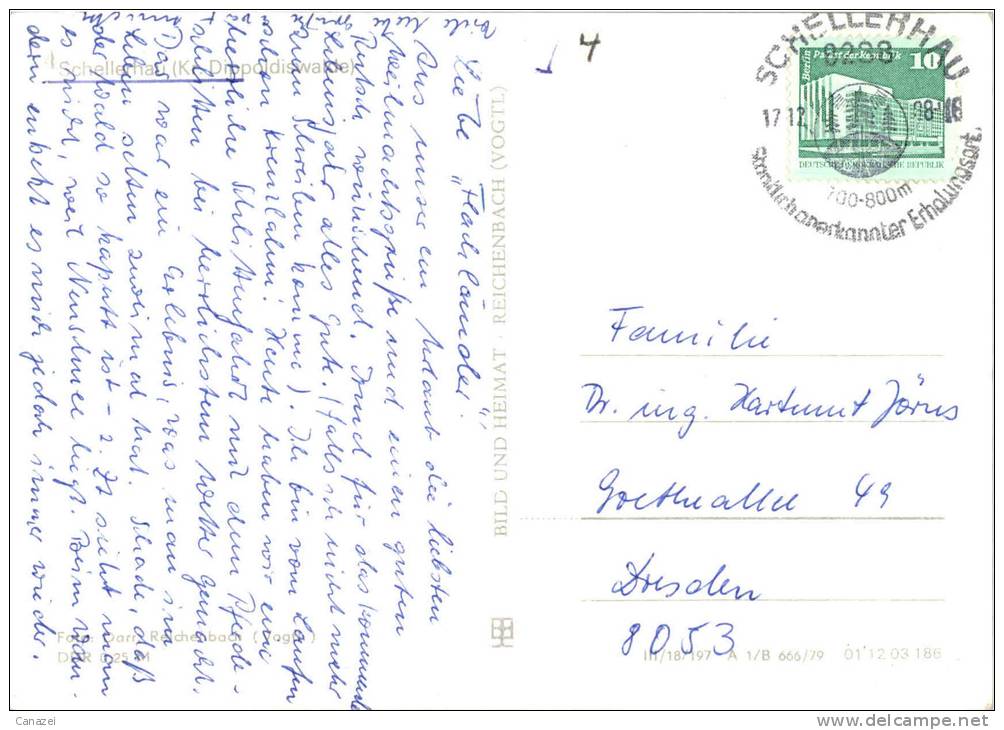 4
Schellerhau (Kr. Dippoldiswalde)
Liebe "Flachländler"
Aus unserem Urlaub die liebsten
Weihnachtsgrüße und einen guten
Rutsch wünschend. Und für das kommende
Lebensjahr alles Gute. (Falls ich nicht mehr
zum Schreiben komme). Ich bin vom Laufen
Heute haben wir eine
herrliche Schlittenfahrt mit dem Pferde-
schlitten bei herrlichstem Wetter gemacht.
Das war ein Erlebnis, was man im
Leben selten zweimal hat. Schade, daß
der Wald so kaputt ist - z. Zt sieht man
es nicht, weil Neuschnee liegt. Beim
erhebt es mich jedoch immer wieder.
Viele liebe
Grüße
Foto: Darr, Reichenbach (Vogtl.)
DDR 0,25 M
BILD UND HEIMAT · REICHENBACH (VOGTL)
SCHELLERHAU
8238
17.12.
700-800m
Staatlich anerkannter Erholungsort
Berlin Palast der Republik
10
DEUTSCHE DEMOKRATISCHE REPUBLIK
Familie
Dr. ing. Hartmut Jörns
Goetheallee 49
Dresden
8053
III/18/197 A 1/B 666/79 01 12 03 186
Canazei
www.delcampe.net